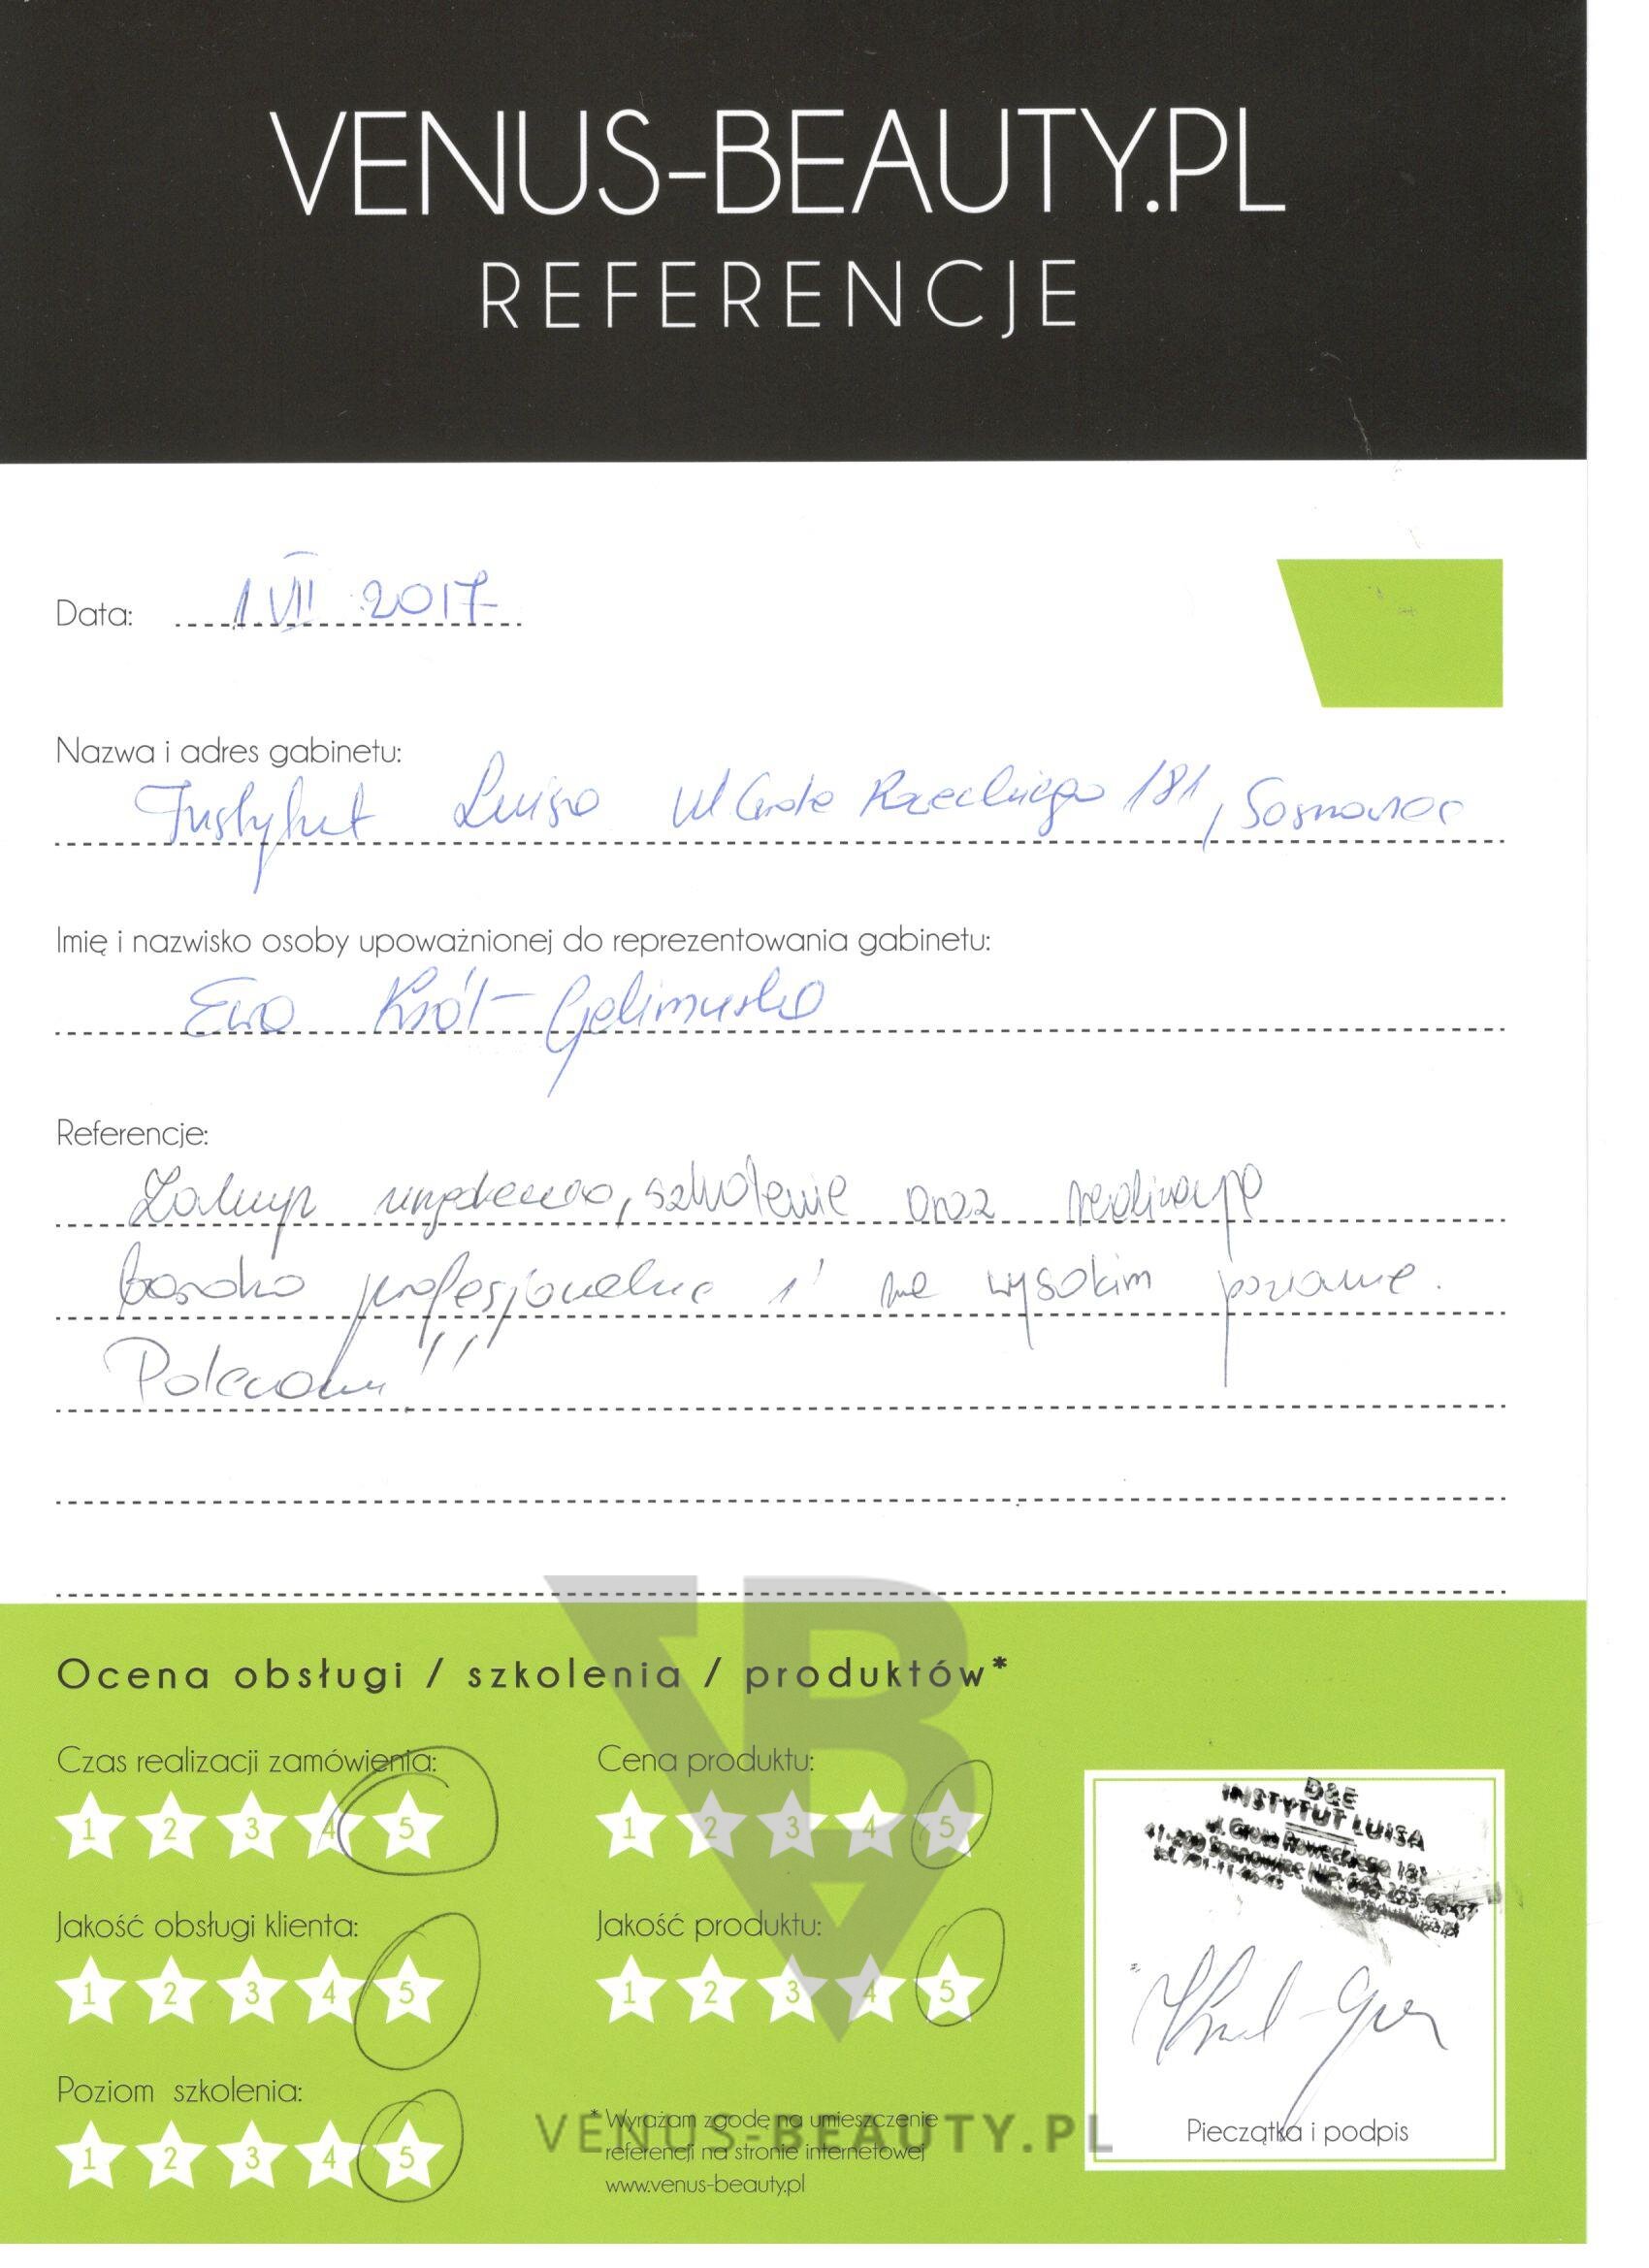 VENUS-BEAUTY.PL
REFERENCJE
Data: 1.VII 2017
Nazwa i adres gabinetu:
Instytut Luisa ul Grota Roweckiego 181, Sosnowiec
Imię i nazwisko osoby upoważnionej do reprezentowania gabinetu:
Ewa Król-
Referencje:
Zakup urządzenia, szkolenie oraz realizacja
bardzo profesjonalne i na wysokim poziomie.
Polecam!!
Ocena obsługi / szkolenia / produktów*
Czas realizacji zamówienia:
1 2 3 4 5
Cena produktu:
1 2 3 4 5
Jakość obsługi klienta:
1 2 3 4 5
Jakość produktu:
1 2 3 4 5
Poziom szkolenia:
1 2 3 4 5
* Wyrażam zgodę na umieszczenie
referencji na stronie internetowej
www.venus-beauty.pl
VENUS-BEAUTY.PL
D&E
INSTYTUT LUISA
ul. Grota Roweckiego 181
Sosnowiec
Pieczątka i podpis